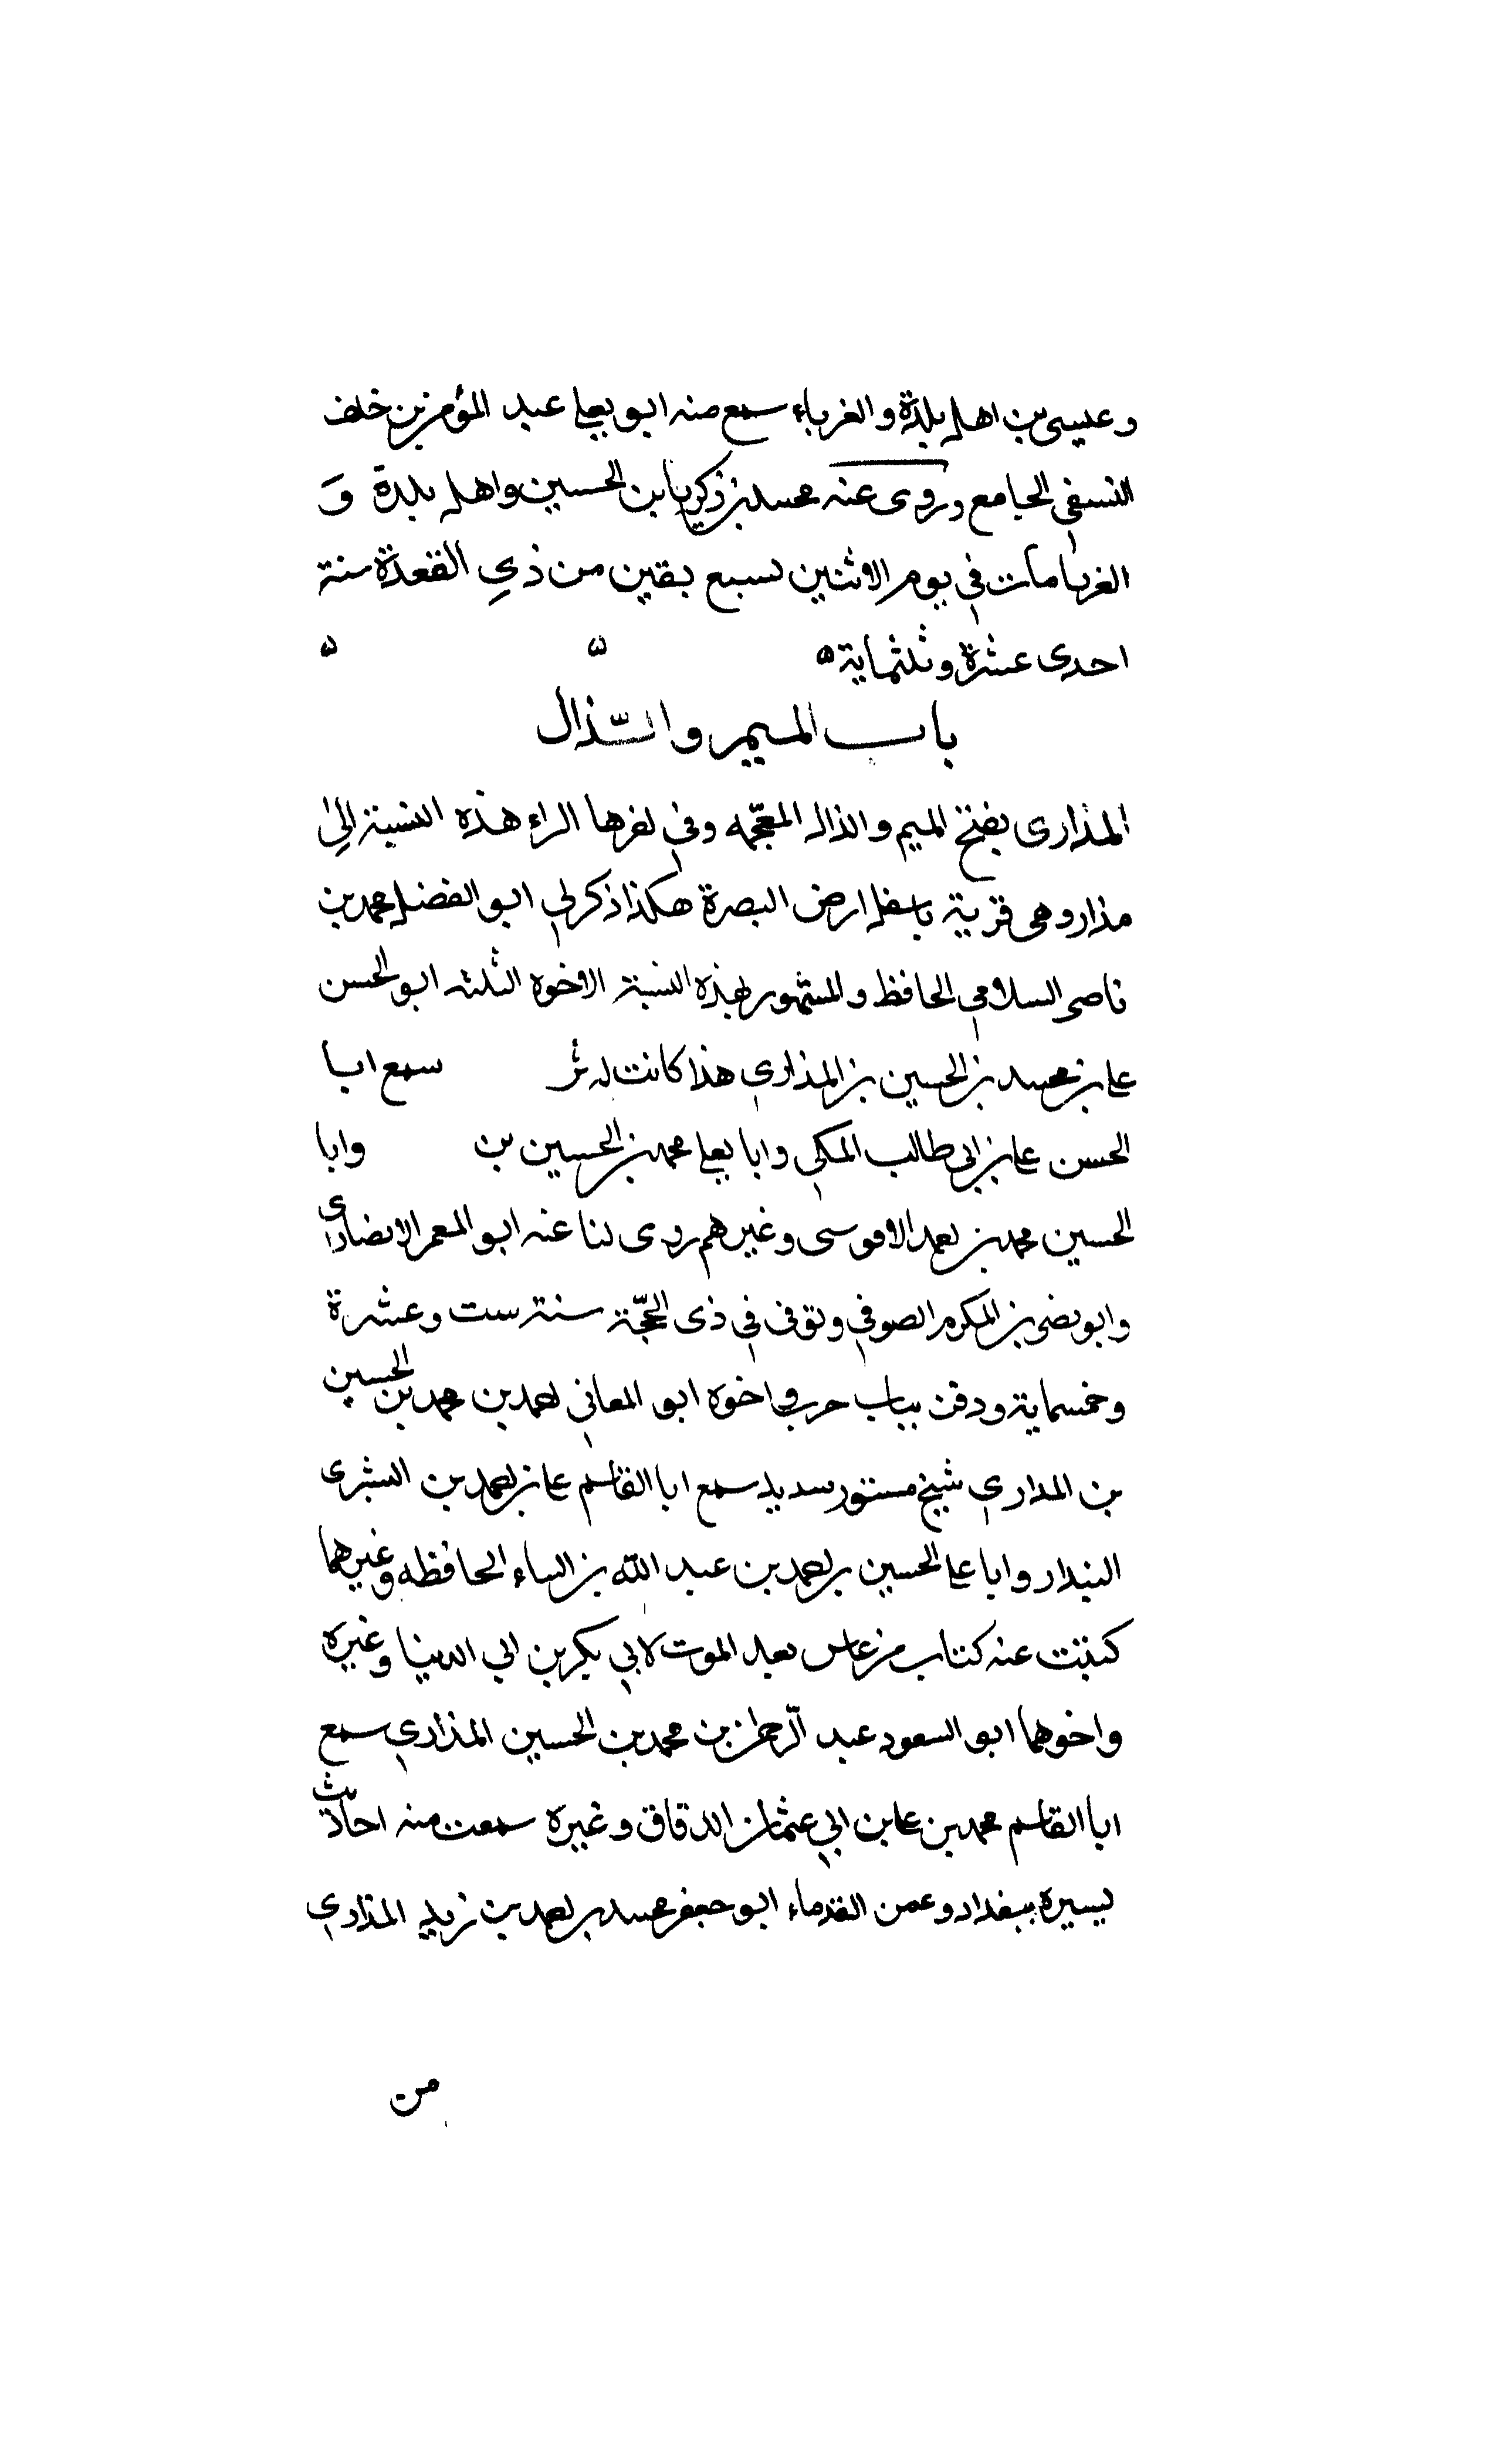 وعيسى بن اهل بلدة والغرباء سمع منه ابو يعلى عبد المؤمن بن خلف
النسفي الجامع وروى عنه محمد بن زكريا بن الحسين واهل بلدة وَ
الغربا مات في يوم الاثنين لسبع بقين من ذي القعدة سنة
احدى عشرة وثلثماية ٥
باب الميم والذال
المذارى بفتح الميم والذال المعجمه وفي اخرها الراء هذه النسبة الى
مذار وهى قرية باسفل ارض البصرة هكذا ذكر لي ابو الفضل محمد بن
ناصر السلامي الحافظ والمشهور بهذه النسبة الاخوه الثلثه ابو الحسن
على بن محمد بن الحسين بن المذاري هذا كانت له سمع ابا
الحسن على بن ابى طالب المكي وابا يعلى محمد بن الحسين بن وابا
الحسين محمد بن احمد الاموسى وغيرهم روى لنا عنه ابو المعمر الانصارى
وابو نصر بن المكرم الصوفي وتوفى في ذى الحجّة سنة ست وعشرة
وخمسماية ودفن بباب حرب واخوه ابو المعاني احمد بن محمد بن الحسين
بن المداري شيخ مستور سديد سمع ابا القاسم على بن احمد بن البشرى
البندار وابا على الحسين بن احمد بن عبد الله بن البناء الحافظه وغيرهما
كتبت عنه كتاب من عاس بعد الموت لابي بكر بن ابي الدنيا وغيره
واخوهما ابو السعود عبد الرحمن بن محمد بن الحسين المذاري سمع
ابا القاسم محمد بن على بن ابي عثمان الدقاق وغيره سمعت منه احاديث
يسيره ببغداد وعمن القدماء ابو جعفر محمد بن احمد بن زيد المذاري
من